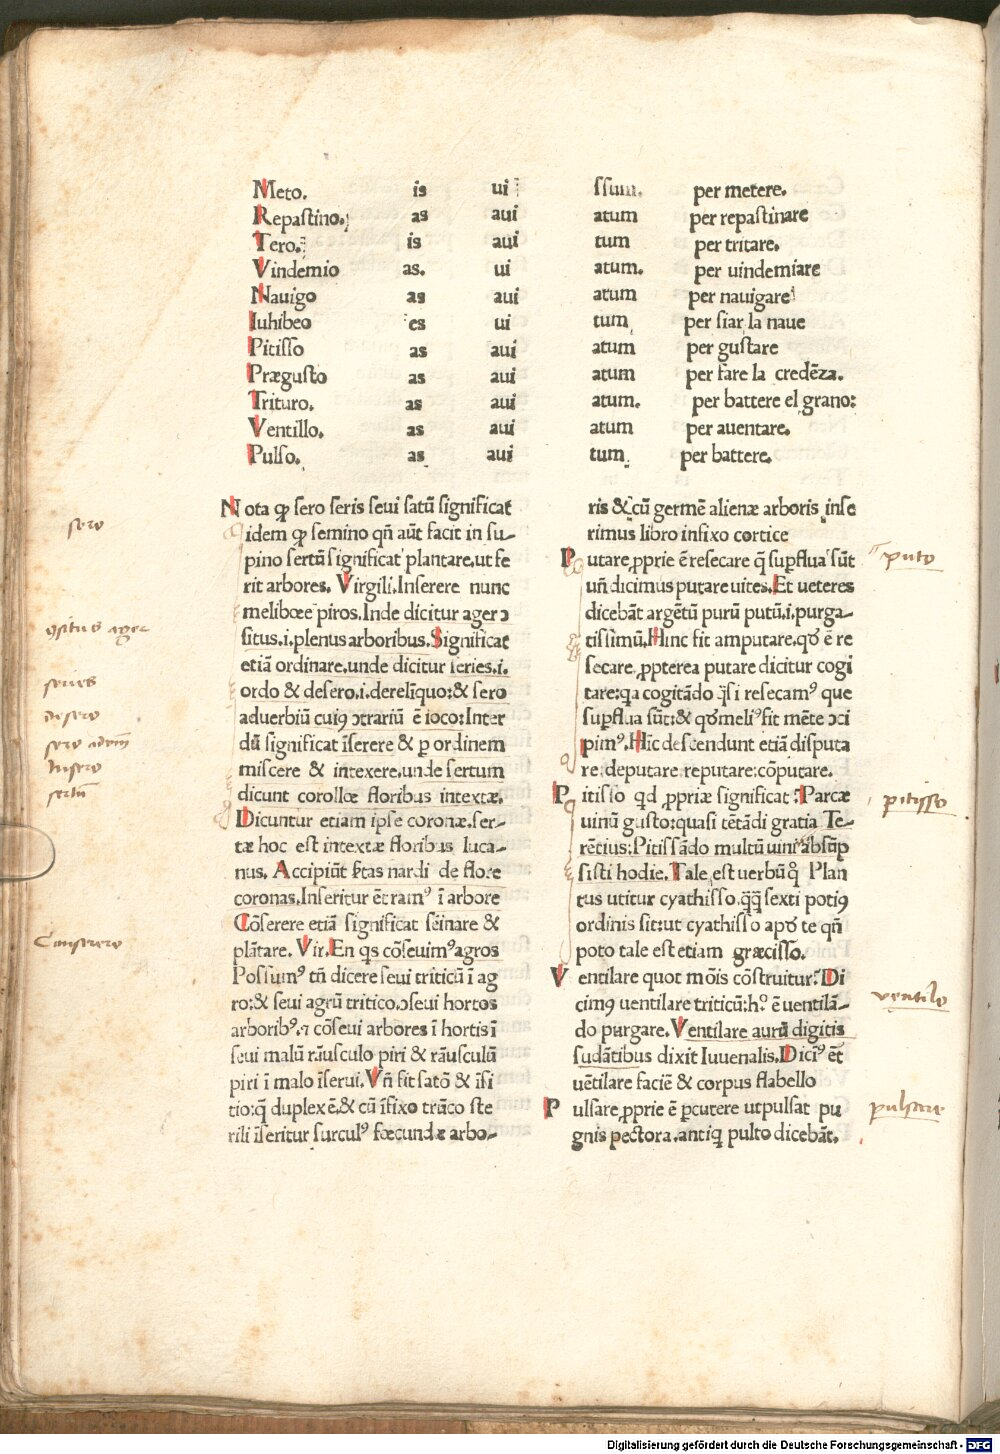 Meto. is ui ssum. per metere.
Repastino. as aui atum per repastinare
Tero. is aui tum per tritare.
Vindemio as. ui atum. per uindemiare
Nauigo as aui atum per nauigare
Iuhibeo es ui tum per siar la naue
Pitisso as aui atum per gustare
Prægusto as aui atum per fare la credēza.
Trituro. as aui atum. per battere el grano:
Ventillo. as aui atum per auentare.
Pulso. as aui tum. per battere.
Nota ꝙ sero seris seui satū significat
idem ꝙ semino qñ aūt facit in su-
pino sertū significat plantare.ut se
rit arbores. Virgili.Inserere nunc
melibœe piros.Inde dicitur ager ɔ
situs.i.plenus arboribus.Significat
etiā ordinare.unde dicitur series.i.
ordo & desero.i.derelīquo:& sero
aduerbiū cuiꝯ ɔtrariū ē ioco:Inter
dū significat īserere & ꝑ ordinem
miscere & intexere.unde sertum
dicunt corollœ floribus intextæ.
Dicuntur etiam ipse coronæ.ser-
tæ hoc est intextæ floribus luca-
nus. Accipiūt s̄tas nardi de flore
coronas.Inseritur ēt ramꝰ ī arbore
Cōserere etiā significat sēinare &
plātare. Vir.En qs cōseuimꝰ agros
Possumꝰ tñ dicere seui triticū ī ag
ro:& seui agrū tritico.ɔseui hortos
arboribꝰ.⁊ cōseui arbores ī hortis ī
seui malū rāusculo piri & rāusculū
piri ī malo īserui.Vñ fit satō & īsi
tio:q̄ duplex ē,& cū īfixo trūco ste
rili īseritur surculꝰ fœcundæ arbo-
ris & cū germē alienæ arboris inse
rimus libro infixo cortice
Putare,ꝓprie ē resecare q̄ suꝑflua sūt
uñ dicimus putare uites.Et ueteres
dicebāt argētū purū putū.i.purga-
tissimū.Hinc fit amputare.qđ ē re
secare.ꝓpterea putare dicitur cogi
tare:qa cogitādo q̄si resecamꝰ que
suꝑflua sūt:& qđ meliꝰ fit mēte ɔci
pimꝰ.Hīc descendunt etiā disputa
re:deputare reputare:cōputare.
Pitisso qd ꝓpriæ significat:Parcæ
uinū gusto:quasi tētādi gratia Te-
rētius:Pitissādo multū uini absūp
sisti hodie.Tale est uerbū qͦ Plau
tus utitur cyathisso.q̄q̄ sexti potiꝯ
ordinis sit:ut cyathisso apđ te qñ
poto tale est etiam græcisso.
Ventilare quot mōis cōstruitur:Di
cimꝯ uentilare triticū:hͦ. ē uentilā-
do purgare.Ventilare aurū digitis
sudātibus dixit Iuuenalis.Dicīꝰ ēt
uētilare faciē & corpus flabello
Pulsare,ꝓprie ē ꝑcutere utpulsat pu
gnis pectora.antiq̄ pulto dicebāt.
sero
ɔsitus ager
series
desero
sero aduer̄
Insero
sertū
Conserere
puto
pitisso
ventilo
pulsare
Digitalisierung gefördert durch die Deutsche Forschungsgemeinschaft - DFG